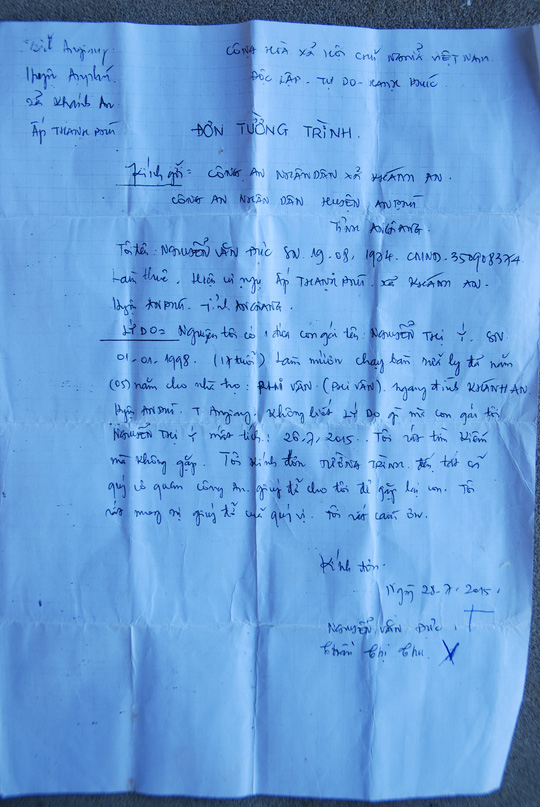 Tỉnh Angiang
Huyện Anphú.
Xã Khánh An
Ấp THẠNH PHÚ
CỘNG HOÀ XẢ HỘI CHŨ NGHIẢ VIỆT NAM
ĐỘC LẬP. TỰ DO - HẠNH PHÚC
ĐƠN TƯỜNG TRÌNH.
Kính gỡi: CÔNG AN NHÂN DÂN XẢ KHÁNH AN.
CÔNG AN NHÂN DÂN HUYỆN ANPHÚ
TỈNH ANGIANG.
Tôi tên NGUYỄN VĂN ĐỰC SN. 19.08, 1974. CMND. 350908374
Làm thuê. Hiện cư ngụ Ấp THẠNH PHÚ. xã KHÁNH AN.
Huyện ANPHÚ. Tỉnh ANGIANG.
LÝ DO: Nguyên tôi có 1 đứa con gái tên NGUYỄN THỊ Ý. SN
01-01-1998. (17 tuổi) Làm mướn chạy bàn ly đã năm
(05) năm cho nhà họ: PHI VÂN (Phi Vân). ngang đình KHÁNH AN
Huyện ANPHÚ. T Angiang. Không biết Lý Do gì mà con gái tôi
NGUYỄN THỊ Ý mất tích: 26.7, 2015. Tôi rất tìm kiếm
mà không gặp. Tôi kính đơn TƯỜNG TRÌNH. đến tất cả
quý cơ quan Công An. giúp đỡ cho tôi để gặp lại con. Tôi
rất mong sự giúp đỡ của quý vị. Tôi rất cảm ơn.
Kính đơn.
Ngày 28.7, 2015.
NGUYỄN VĂN ĐỰC.
Trần Thị Thu X